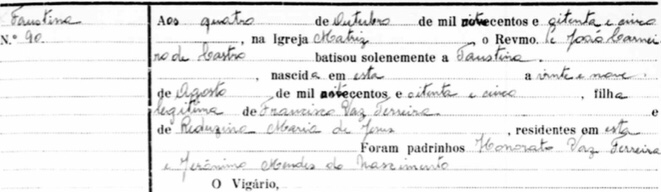 Faustina
N.º 90.
Aos quatro de Outubro de mil oitocentos e oitenta e cinco
, na Igreja Matriz , o Revmo. Pe João Carnei
ro de Castro batisou solenemente a Faustina.
, nascida em esta a vinte e nove
de Agosto de mil oitocentos e oitenta e cinco , filha
legitima de Francisco Vaz Ferreira e
de Maria de Jesus , residentes em esta
Foram padrinhos Honorato Vaz Ferreira
e Jerônimo Mendes do Nascimento
O Vigário,